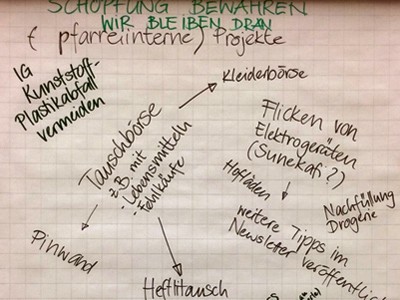 SCHÖPFUNG BEWAHREN
WIR BLEIBEN DRAN
( pfarreiinterne) Projekte
IG
Kunststoff-
Plastikabfall
vermeiden
Kleiderbörse
Tauschbörse
z.B. mit
· Lebensmitteln
· Fehlkäufe
Flicken von
Elektrogeräten
(Sunekafi?)
Hofläden
Nachfüllung
Drogerie
weitere Tipps im
Newsletter veröffentlich
Pinwand
Heftlitausch